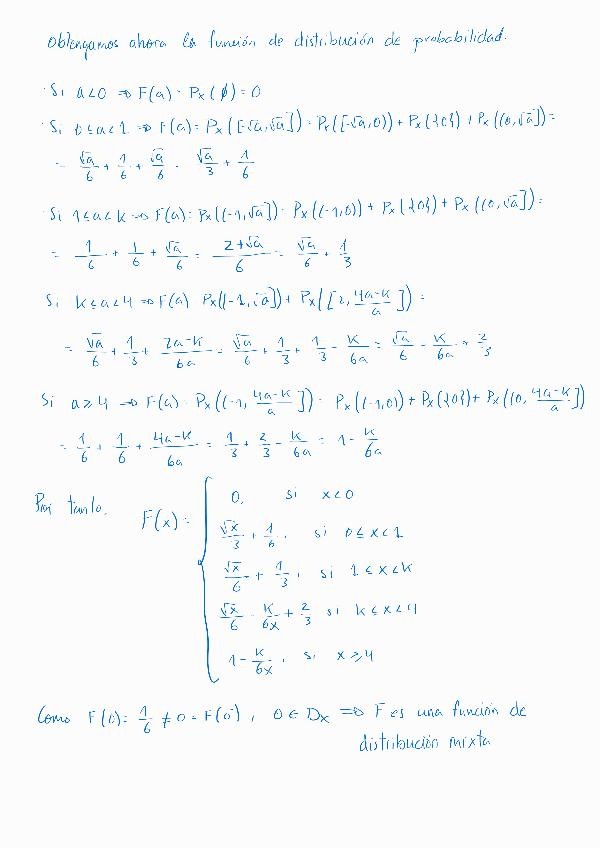 Obtengamos ahora la función de distribución de probabilidad.
· Si a<0 ⇒ F(a) = Px(∅) = 0
· Si 0≤a<1 ⇒ F(a) = Px([-√a,√a]) = Px([-√a,0)) + Px({0}) + Px((0,√a]) =
= √a/6 + 1/6 + √a/6 = √a/3 + 1/6
Si 1≤a<k ⇒ F(a) = Px((-1,√a]) = Px((-1,0)) + Px({0}) + Px((0,√a]) =
= 1/6 + 1/6 + √a/6 = (2+√a)/6 = √a/6 + 1/3
Si k≤a<4 ⇒ F(a) = Px((-1,√a]) + Px([2, (4a-k)/a]) =
= √a/6 + 1/3 + (2a-k)/6a = √a/6 + 1/3 + 1/3 - k/6a = √a/6 - k/6a + 2/3
Si a≥4 ⇒ F(a) = Px((-1, (4a-k)/a]) = Px((-1,0)) + Px({0}) + Px((0, (4a-k)/a])
= 1/6 + 1/6 + (4a-k)/6a = 1/3 + 2/3 - k/6a = 1 - k/6a
Por tanto, F(x) = { 0, si x<0
√x/3 + 1/6, si 0≤x<1
√x/6 + 1/3, si 1≤x<k
√x/6 - k/6x + 2/3 si k≤x<4
1 - k/6x, si x≥4
Como F(0) = 1/6 ≠ 0 = F(0⁻), 0 ∈ Dx ⇒ F es una función de
distribución mixta